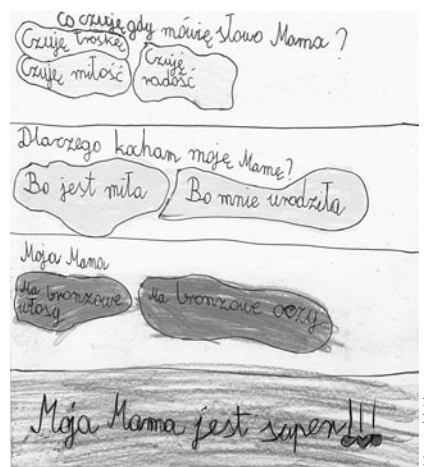 Co czuję gdy mówię słowo Mama?
Czuję troskę
Czuję miłość
Czuję
radość
Dlaczego kocham moję Mamę?
Bo jest miła
Bo mnie urodziła
Moja Mama
Ma bronzowe
włosy
Ma bronzowe oczy
Moja Mama jest super!!!